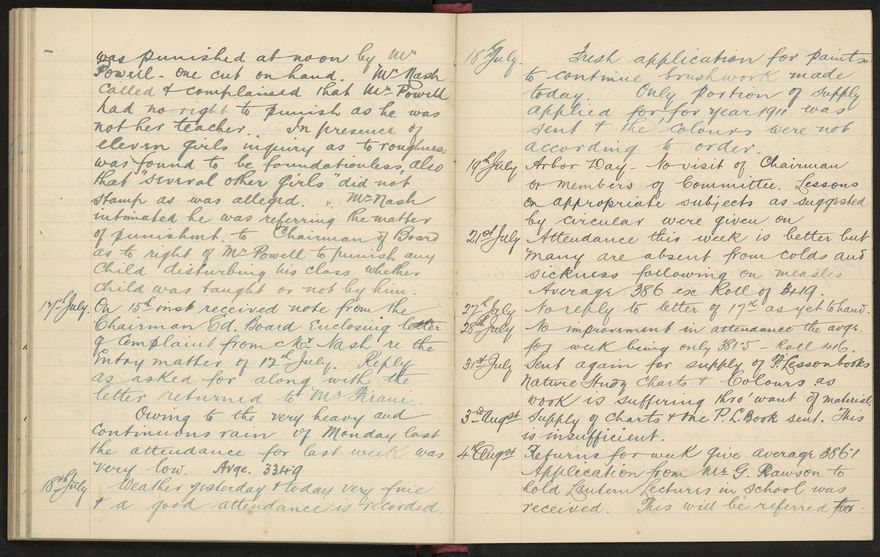 was punished at noon by Mr
Powell - one cut on hand. Mr Nash
called & complained that Mr Powell
had no right to punish as he was
not her teacher. In presence of
eleven girls inquiry as to roughness
was found to be foundationless, also
that "several other girls" did not
stamp as was alleged. Mr Nash
intimated he was referring the matter
of punishmt. to Chairman of Board
as to right of Mr Powell to punish any
child disturbing his class whether
child was taught or not by him.
17th July. On 15th inst received note from the
Chairman Ed. Board Enclosing letter
of complaint from Mr Nash re the
Entry matter of 12th July. Reply
as asked for along with the
letter returned to Mr
Owing to the very heavy and
continuous rain of Monday last
the attendance for last week was
very low. Avge. 334.9
18th July Weather yesterday & today very fine
& a good attendance is recorded.
18th July. Fresh application for paints
to continue brushwork made
today. Only portion of supply
applied for for year 1911 was
sent & the colours were not
according to order.
19th July Arbor Day - No visit of Chairman
or members of Committee. Lessons
on appropriate subjects as suggested
by circular were given on
21st July Attendance this week is better but
many are absent from colds and
sickness following on measles
Average 386 ex Roll of 419.
27th July No reply to letter of 17th as yet to hand.
28th July No improvement in attendance the avge.
for week being only 381.5 - Roll 416.
31st July Sent again for supply of P. Lesson books
Nature Study Charts & Colours as
work is suffering thro' want of material
3rd Augst Supply of Charts & one P. L. Book sent. This
is insufficient.
4th Augst Returns for week give average 386.1
Application from Mr G. Rawson to
hold Lantern Lectures in School was
received. This will be referred for